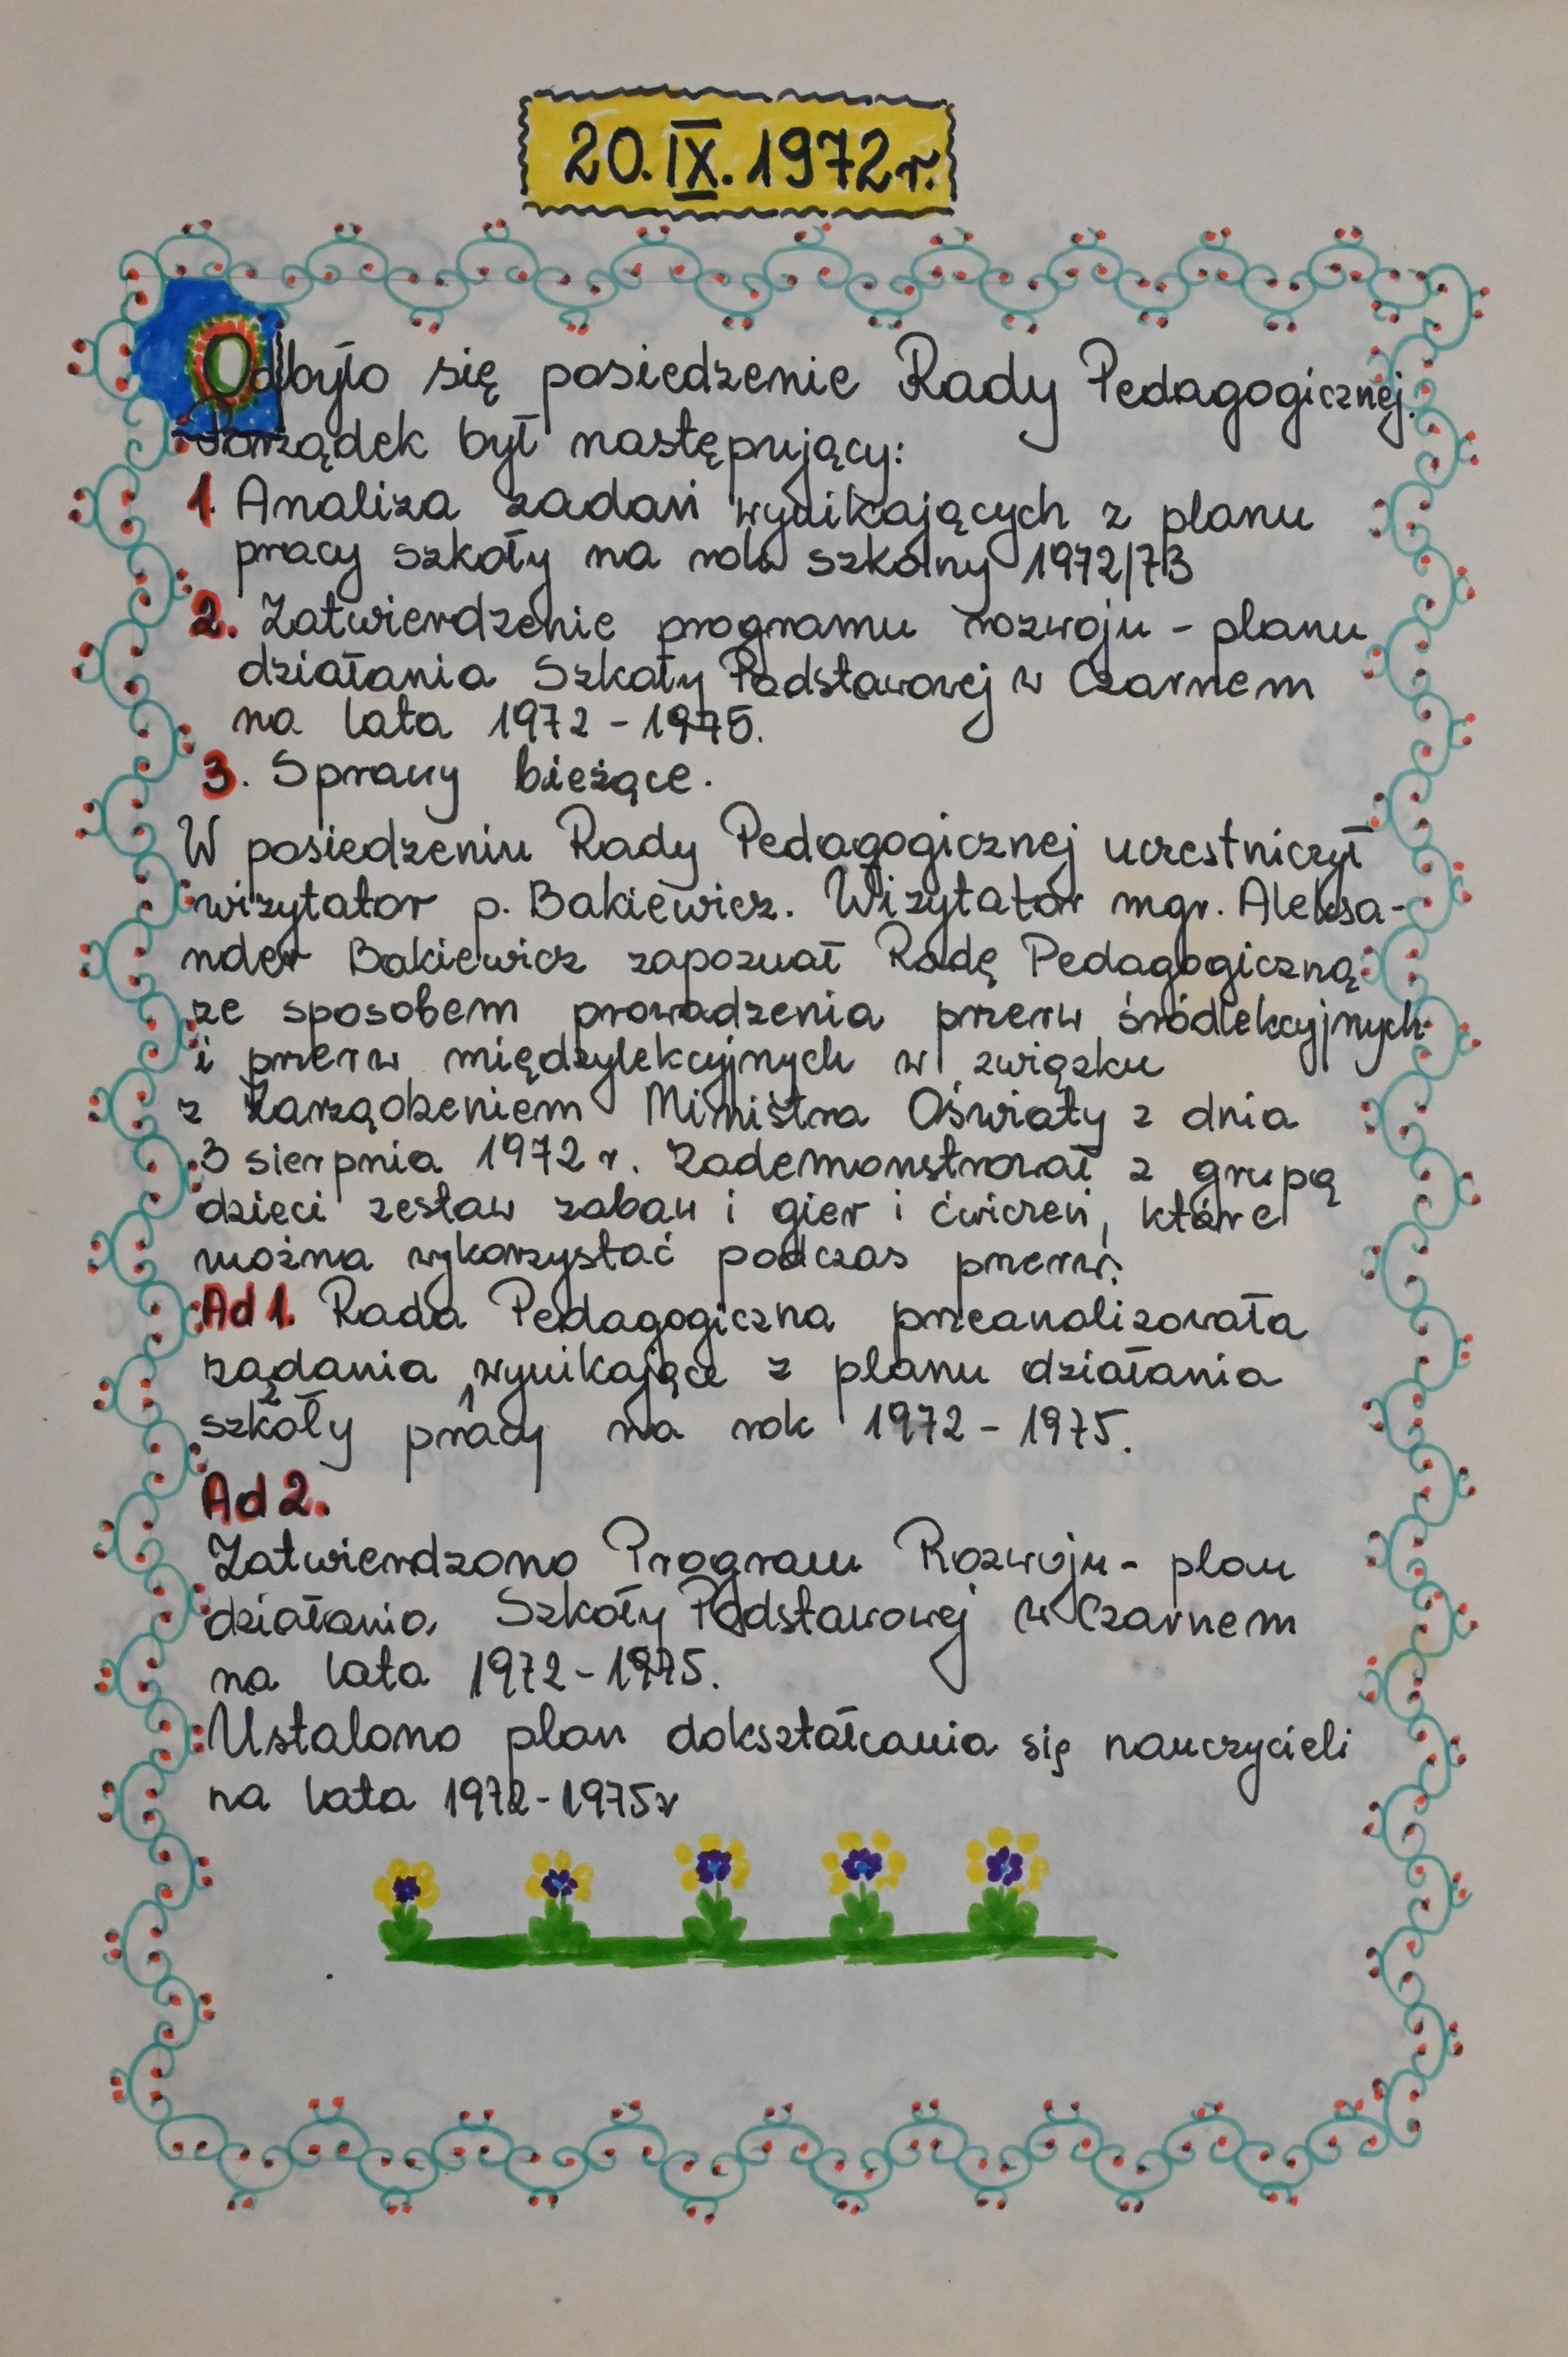 20.IX.1972r.
Odbyło się posiedzenie Rady Pedagogicznej.
Porządek był następujący:
1. Analiza zadań wynikających z planu
pracy szkoły na rok szkolny 1972/73
2. Zatwierdzenie programu rozwoju - planu
działania Szkoły Podstawowej w Czarnem
na lata 1972 - 1975.
3. Sprawy bieżące.
W posiedzeniu Rady Pedagogicznej uczestniczył
wizytator p. Bakiewicz. Wizytator mgr. Aleksa-
nder Bakiewicz zapoznał Radę Pedagogiczną
ze sposobem prowadzenia przerw śródlekcyjnych
i przerw międzylekcyjnych w związku
z Zarządzeniem Ministra Oświaty z dnia
3 sierpnia 1972 r. Zademonstrował z grupą
dzieci zestaw zabaw i gier i ćwiczeń, które
można wykorzystać podczas przerw.
Ad 1. Rada Pedagogiczna przeanalizowała
zadania wynikające z planu działania
szkoły pracy na rok 1972 - 1975.
Ad 2.
Zatwierdzono Program Rozwoju - plan
działania Szkoły Podstawowej w Czarnem
na lata 1972 - 1975.
Ustalono plan dokształcania się nauczycieli
na lata 1972 - 1975r